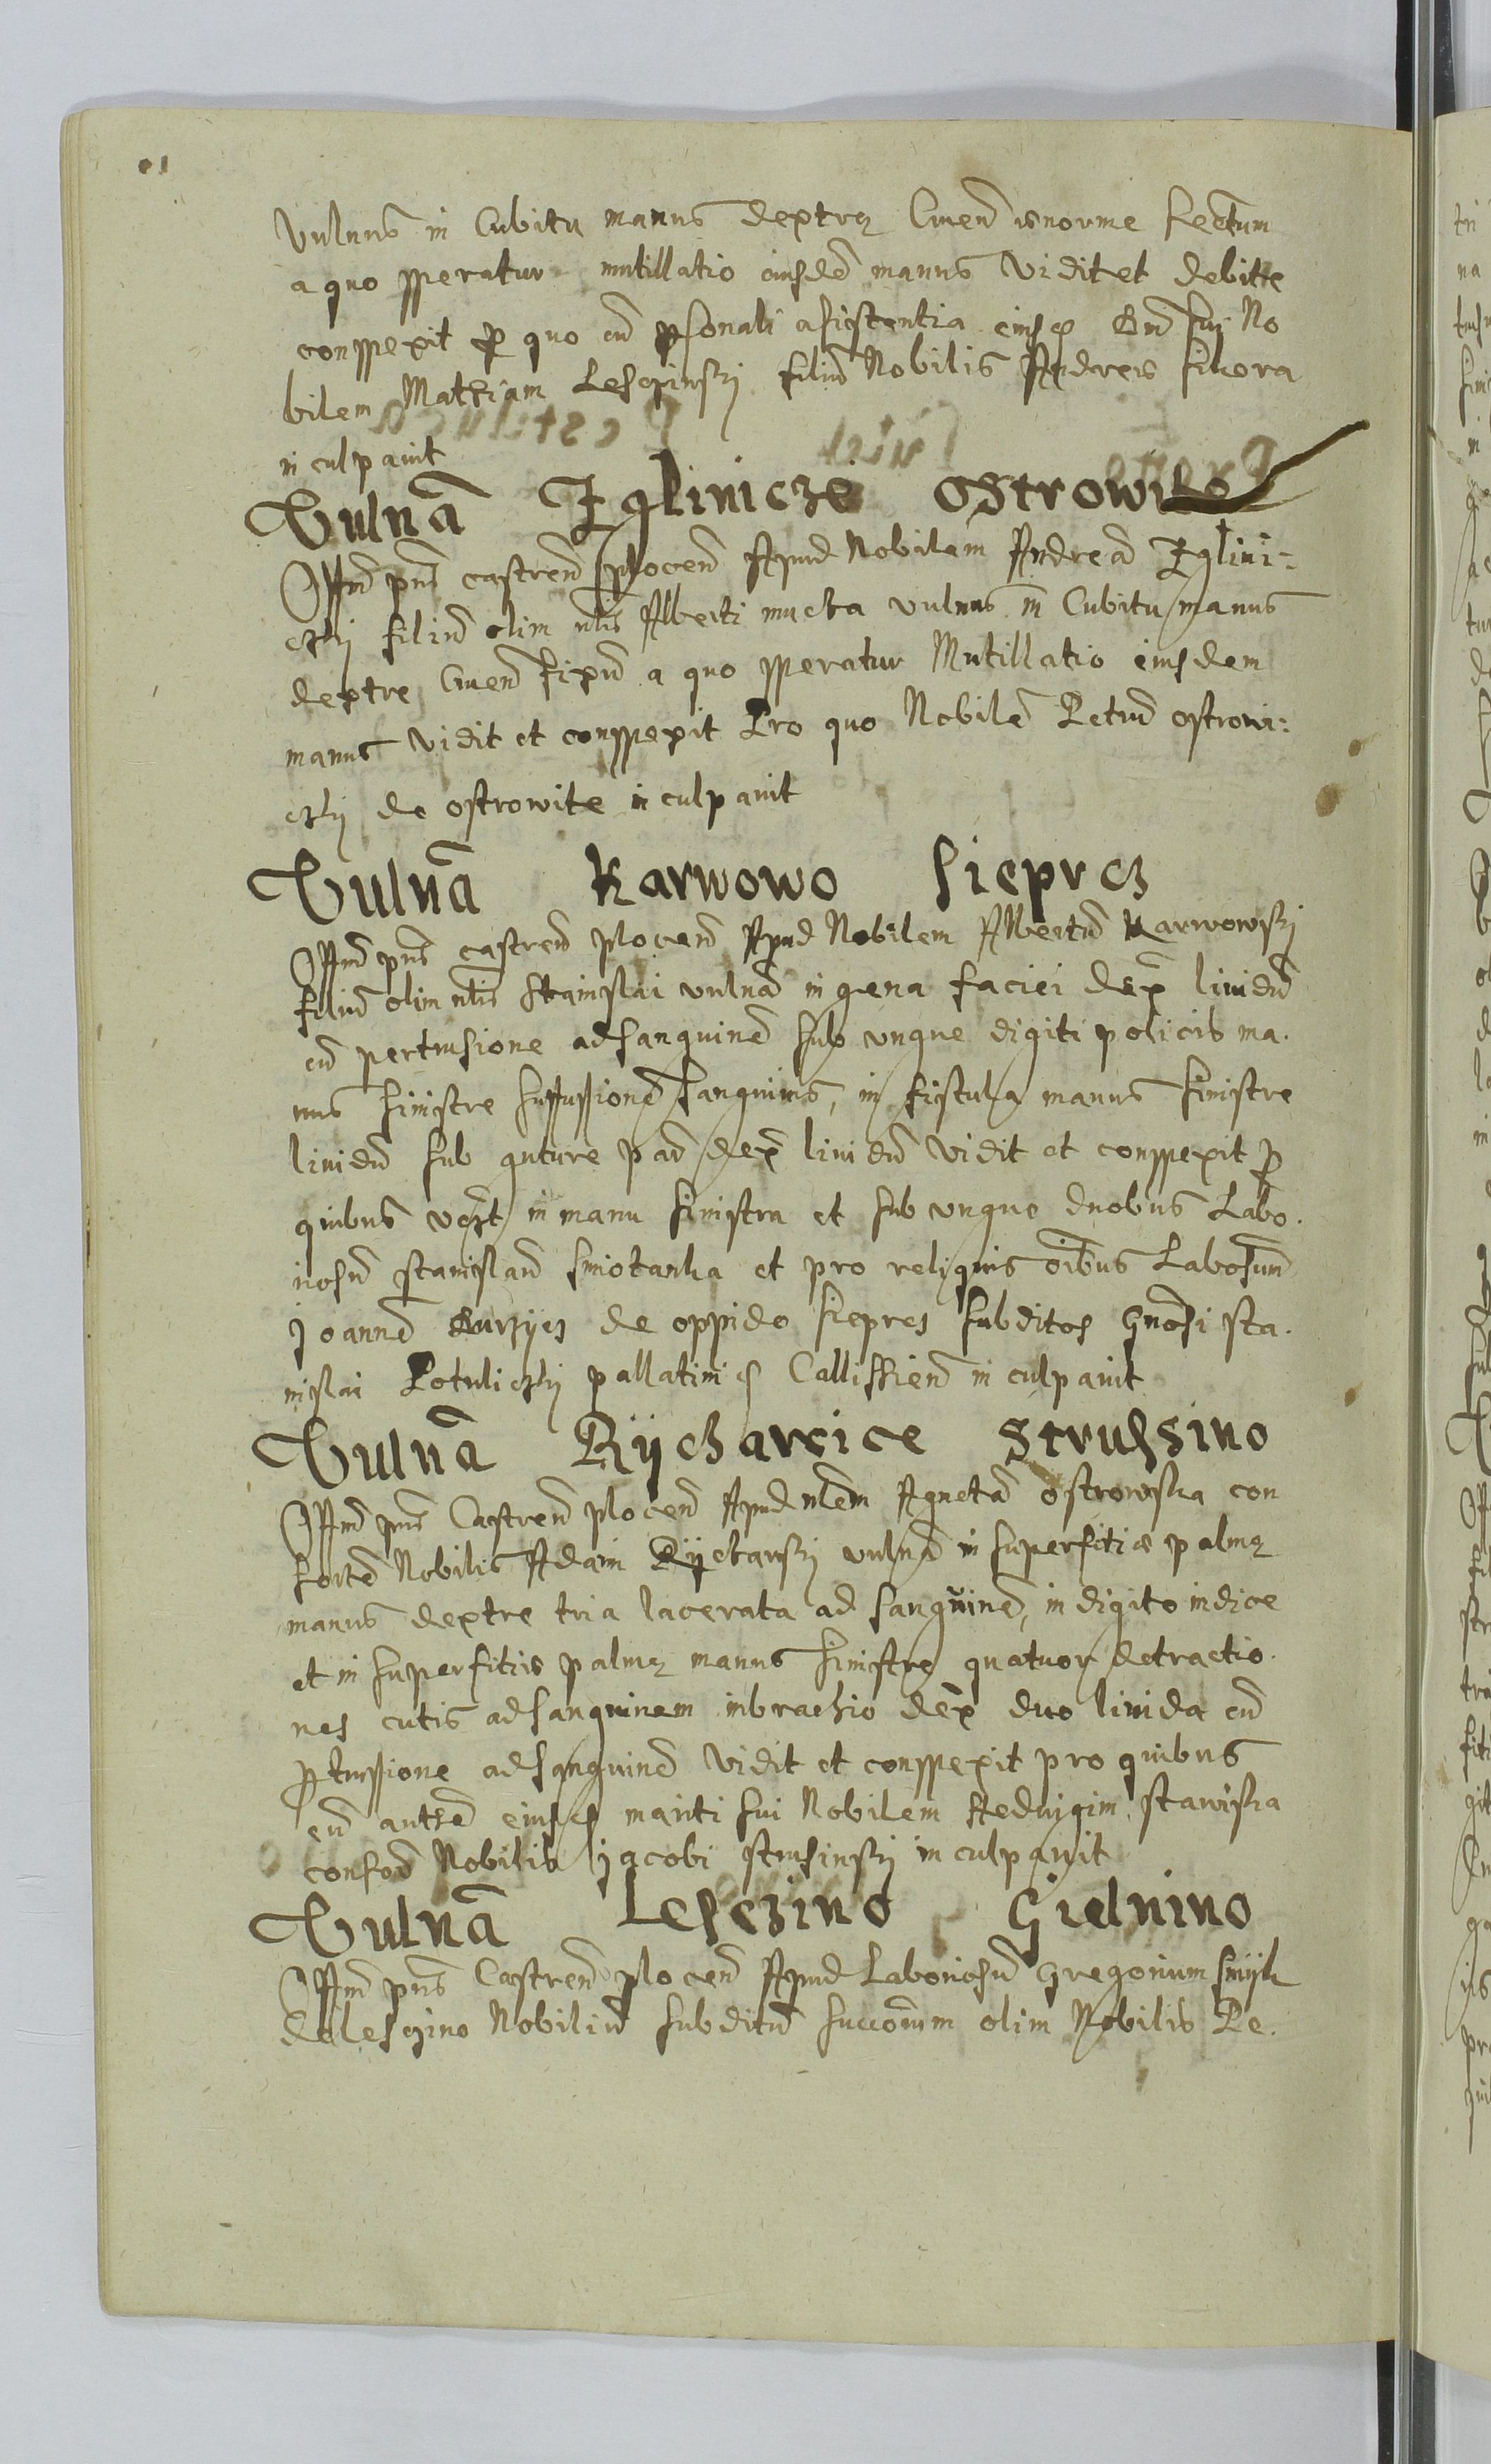 Vulnus in Cubitu manus dextrę Cruen enorme sectum
a quo speratur mutillatio eiusdē manus Vidit et debite
conspexit p quo cū psonali asistentia eiusq sui No
bilem Mathiam Lesczinskj filiū Nobilis Andreis sikora
inculpauit
Vulnā Iglinicze Ostrowite
Offm pns castren plocen Apud Nobilem Andreā Iglini:
czkj filiū olim nlis Alberti vulnus in Cubitu manus
dextre Cruen a quo speratur Mutillatio eiusdem
manus Vidit et conspexit Pro quo Nobilē Petrū ostrowi:
czkj de ostrowite inculpauit
Vulnā Karwowo Sieprcz
Offm pns castren plocen Apud Nobilem Albertū Karwowskj
filiū olim nlis Stanislai vulnā in gena faciei dex liuidū
cū pertusione ad sanguinē sub ungue digiti policis ma.
nus sinistre suffusionē sanguinis, in fistula manus sinistre
liuidū sub guture dex liuidū Vidit et conspexit p
quibus in manu sinistra et sub ungue duobus Labo.
riosū stanislaū smiotanka et pro reliquis oibus Labosum
Joannē de oppido sieprcz subditos Gnosi sta.
nislai Potuliczkj pallatini Callissien inculpauit
Vulnā Rÿcharcice Strussino
Offm pns Castren plocen Apud nlem Agnetā ostrowska con
sortē Nobilis Adam vulnā in superfitie palmę
manus dextre tria lacerata ad sanguinē, in digito indice
et in superfitiis palmę manus sinistrę quatuor detractio.
nes cutis ad sanguinem in brachio dex duo liuida cū
ptussione ad sanguinē Vidit et conspexit pro quibus
cū eiusq mariti sui Nobilem Heduigim
consortē Nobilis Jacobi strusinskj inculpauit
Vulnā Lesczino Gielnino
Offm pns Castren plocen Apud Laboriosū Gregorium
de lesczino Nobiliū subditū succorum olim Nobilis Pe.